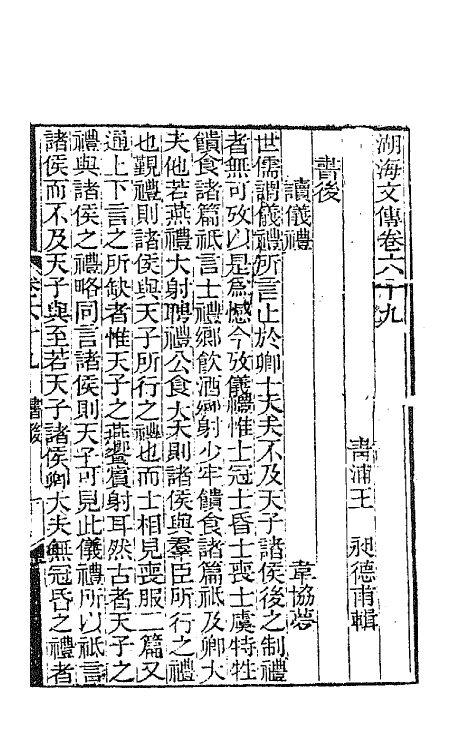 湖海文傳卷六十九
青浦王昶德甫輯
書後
讀儀禮　韋協夢
世儒謂儀禮所言止於卿士大夫不及天子諸侯後之制禮
者無可攷以是爲憾今攷儀禮惟士冠士昏士喪士虞特牲
饋食諸篇祗言士禮鄉飲酒鄉射少牢饋食諸篇祗及卿大
夫他若燕禮大射聘禮公食大夫則諸侯與羣臣所行之禮
也覲禮則諸侯與天子所行之禮也而士相見喪服二篇又
通上下言之所缺者惟天子之燕饗賓射耳然古者天子之
禮與諸侯之禮略同言諸侯則天子可見此儀禮所以祗言
諸侯而不及天子與至若天子諸侯卿大夫無冠昏之禮者
卷六十九　書後　一